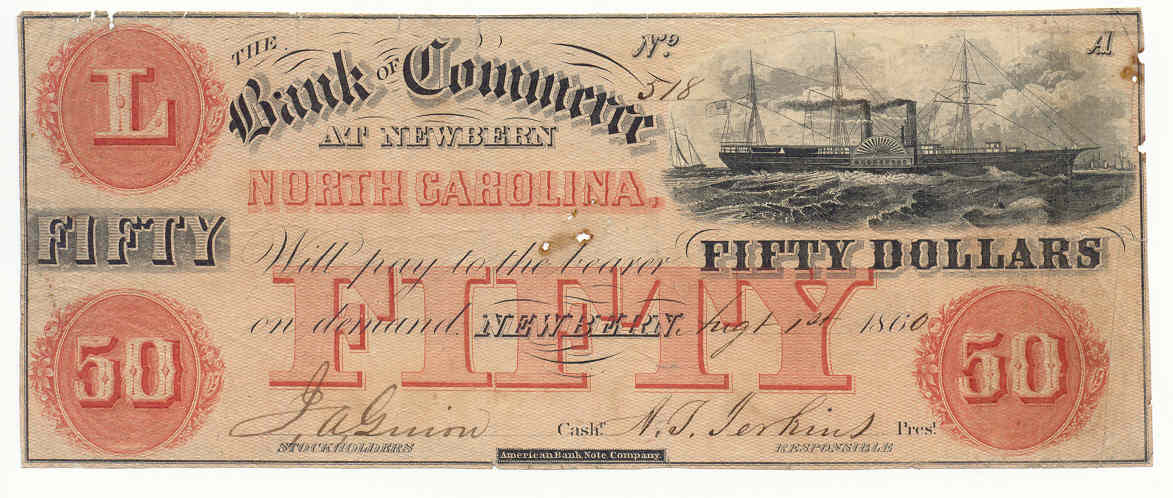 THE
Bank OF Commerce
AT NEWBERN
NORTH CAROLINA,
Nº 518
A1
L
FIFTY
Will pay to the bearer FIFTY DOLLARS
FIFTY
on demand. NEWBERN, Augt 1st 1860
50
50
J A Guion Cashr. A. T. Jerkins Prest.
STOCKHOLDERS RESPONSIBLE
American Bank Note Company.